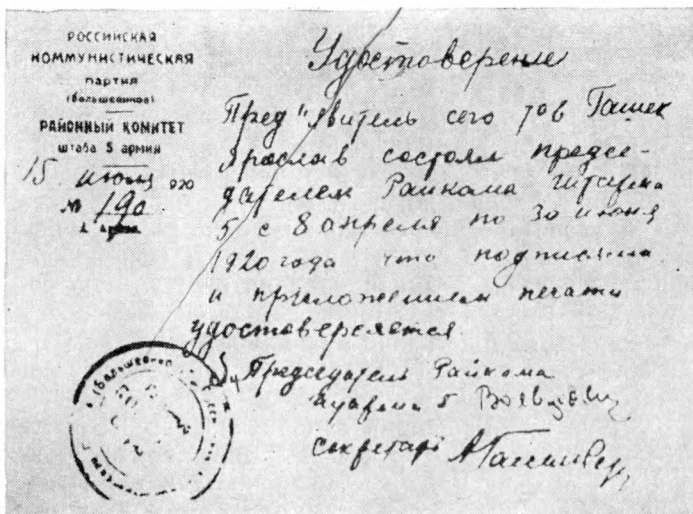 РОССИЙСКАЯ
КОММУНИСТИЧЕСКАЯ
партия
(большевиков)
РАЙОННЫЙ КОМИТЕТ
штаба 5 армии
15 920
№ 190
Удостоверение
Пред"явитель сего тов Гашек
Ярослав состоял предсе-
дателем Райкома штарма
5 с 8 апреля по 30 июня
1920 года что подписями
и приложением печати
удостоверяется
Председатель Райкома
5
Секретарь